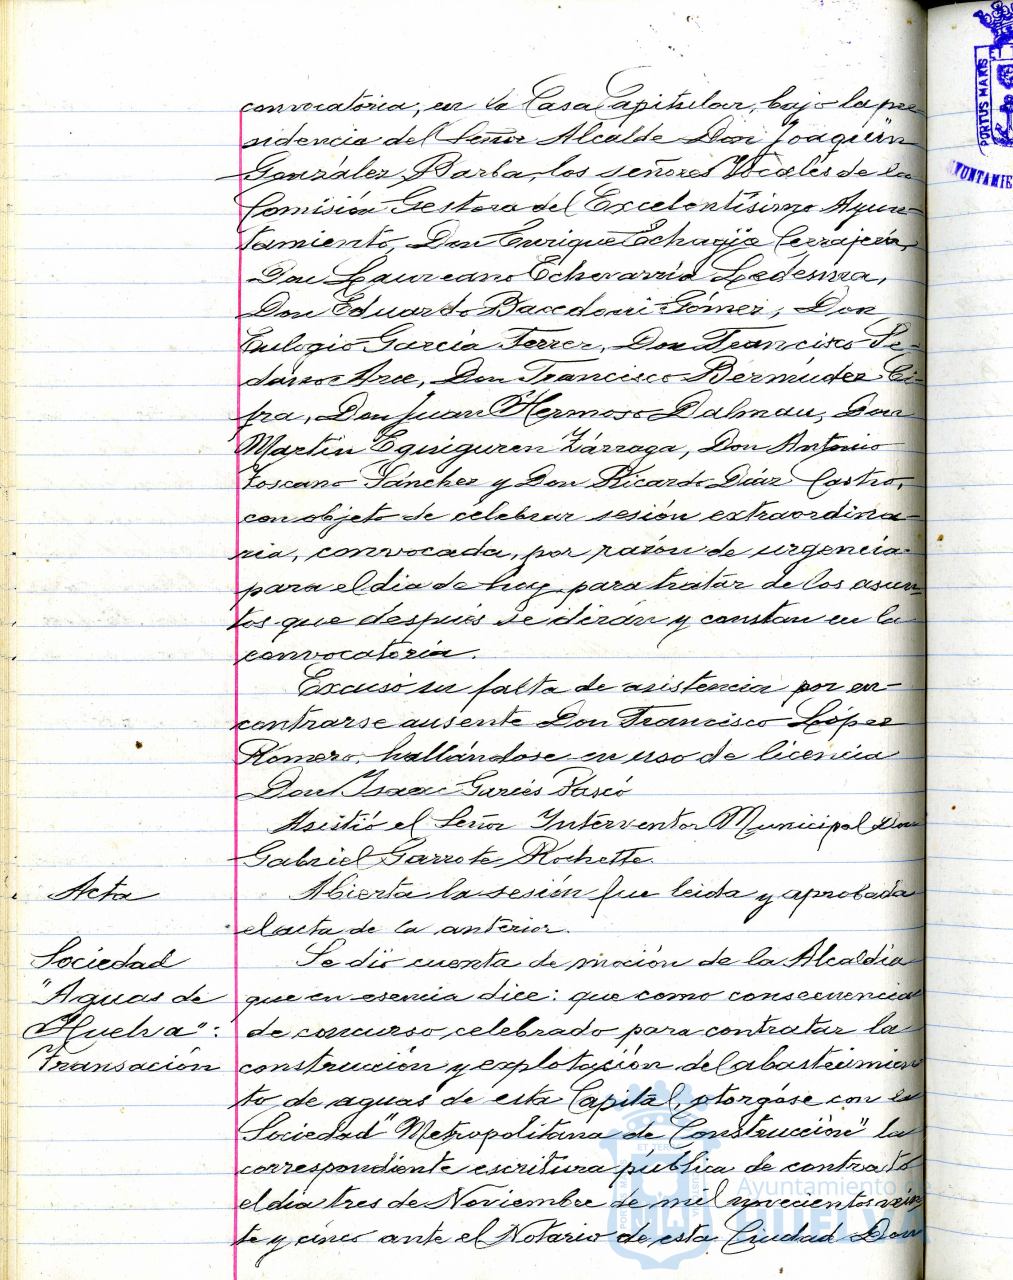 convocatoria, en la Casa Capitular, bajo la pre-
sidencia del Señor Alcalde Don Joaquín
González Barba, los señores Vocales de la
Comisión Gestora del Excelentísimo Ayun-
tamiento, Don Enrique Echagüe Cerrajería,
Don Laureano Echevarría Ledesma,
Don Eduardo Bacedoni Gómez, Don
Eulogio García Ferrer, Don Francisco Se-
daño Arce, Don Francisco Bermúdez Ci-
fra, Don Juan Hermoso Dalmau, Don
Martín Eguiguren Zárraga, Don Antonio
Toscano Sánchez y Don Ricardo Díaz Castro,
con objeto de celebrar sesión extraordina-
ria, convocada, por razón de urgencia
para el dia de hoy para tratar de los asun-
tos que después se dirán y constan en la
convocatoria.
Excusó su falta de asistencia por en-
contrarse ausente Don Francisco López
Romero, hallándose en uso de licencia
Don Isaac
Asistió el Señor Interventor Municipal Don
Gabriel Garrote Rochette.
Acta
Abierta la sesión fue leida y aprobada
el acta de la anterior.
Sociedad
"Aguas de
Huelva":
Transación
Se dió cuenta de moción de la Alcaldía
que en esencia dice: que como consecuencia
de concurso celebrado para contratar la
construcción y explotación del abastecimien
to de aguas de esta Capital, otorgóse con la
Sociedad "Metropolitana de Construcción" la
correspondiente escritura pública de contrato
el día tres de Noviembre de mil novecientos vein
te y cinco ante el Notario de esta Ciudad Don
PORTUS MARIS
AYUNTAMIE
Ayuntamiento de
HUELVA